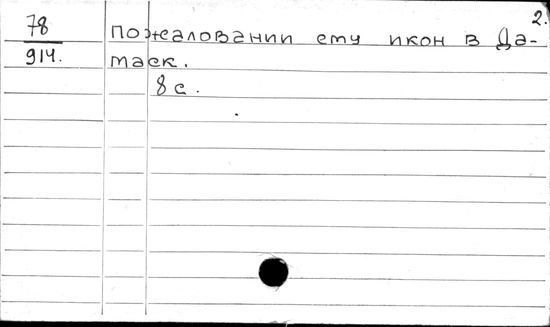 2.
78
914.
пожаловании ему икон в Да-
маск.
8 с.